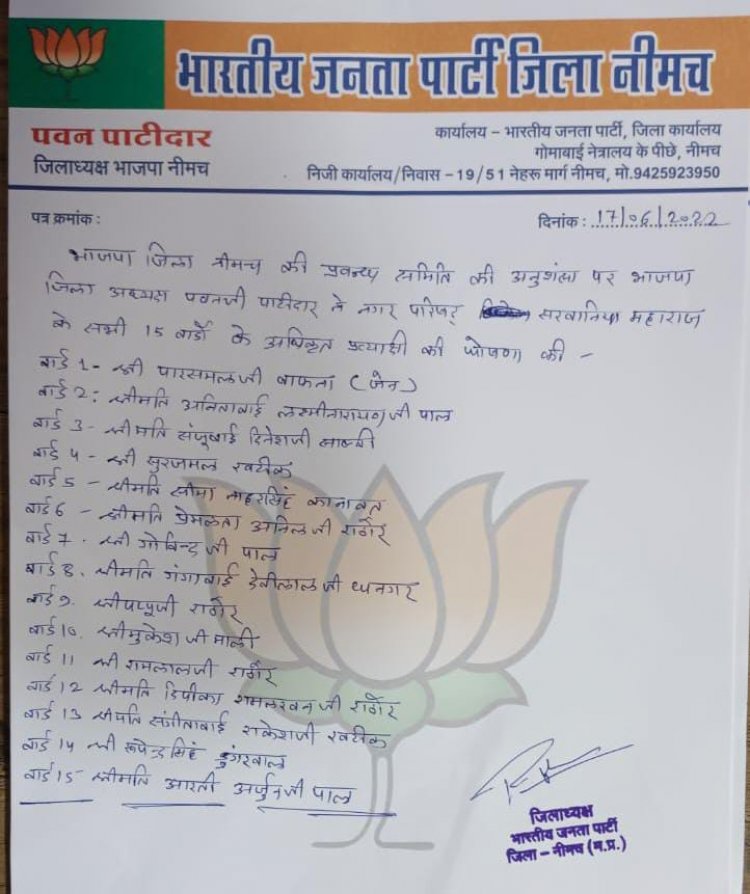 भारतीय जनता पार्टी जिला नीमच
पवन पाटीदार
जिलाध्यक्ष भाजपा नीमच
कार्यालय – भारतीय जनता पार्टी, जिला कार्यालय
गोमाबाई नेत्रालय के पीछे, नीमच
निजी कार्यालय/निवास – 19/51 नेहरू मार्ग नीमच, मो.9425923950
पत्र क्रमांक :
दिनांक : 17/06/2022
भाजपा जिला नीमच की प्रबन्ध समिति की अनुशंसा पर भाजपा
जिला अध्यक्ष पवनजी पाटीदार ने नगर परिषद् सरवानिया महाराज
के सभी 15 वार्डों के अधिकृत प्रत्याशी की घोषणा की –
वार्ड 1 - श्री पारसमलजी बाफना (जैन)
वार्ड 2 : श्रीमति अनिताबाई लक्ष्मीनारायण जी पाल
वार्ड 3 - श्रीमति संजूबाई दिनेशजी
वार्ड 4 - श्री सुरजमल खटीक
वार्ड 5 - श्रीमति सीमा नाहरसिंह कानावत
वार्ड 6 - श्रीमति प्रेमलता अनिल जी राठौर
वार्ड 7 - श्री गोविन्द जी पाल
वार्ड 8. श्रीमति गंगाबाई देवीलाल जी धनगर
वार्ड 9. श्री पप्पूजी राठौर
वार्ड 10. श्री मुकेश जी माली
वार्ड 11 श्री रामलालजी राठौर
वार्ड 12 श्रीमति दिपीका रामलखन जी राठौर
वार्ड 13 श्रीमति संगीताबाई राकेशजी खटीक
वार्ड 14 श्री रूपेन्द्र सिंह डुंगरवाल
वार्ड 15 - श्रीमति आरती अर्जुनजी पाल
जिलाध्यक्ष
भारतीय जनता पार्टी
जिला – नीमच (म.प्र.)